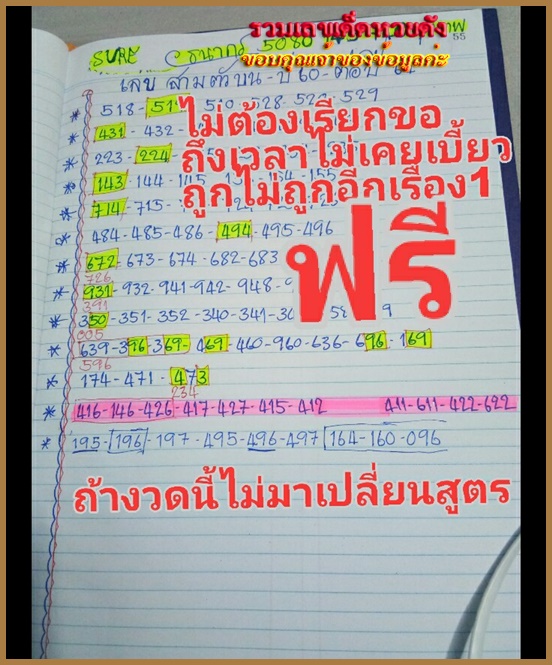 รวมเลขเด็ดหวยดัง
ขอบคุณเจ้าของข้อมูลค่ะ
SURE ธนากร 5080
55
เลข สามตัวบน - ปี 60 -
518 - 529
431 - 432 -
ไม่ต้องเรียกขอ
223 - 224 -
ถึงเวลาไม่เคยเบี้ยว
143 - 144 - 145 - 155
ถูกไม่ถูกอีกเรื่อง1
714 - 715 -
484 - 485 - 486 - 494 - 495 - 496
ฟรี
672 - 673 - 674 - 682 - 683
726
931 - 932 - 941 - 942 - 948 -
391
350 - 351 - 352 - 340 - 341 -
005
639 - 396 - 369 - 469 - 460 - 960 - 636 - 696 - 169
596
174 - 471 - 473
234
416 - 146 - 426 - 417 - 427 - 415 - 412 411 - 611 - 422 - 622
195 - 196 - 197 - 495 - 496 - 497 164 - 160 - 096
ถ้างวดนี้ไม่มาเปลี่ยนสูตร